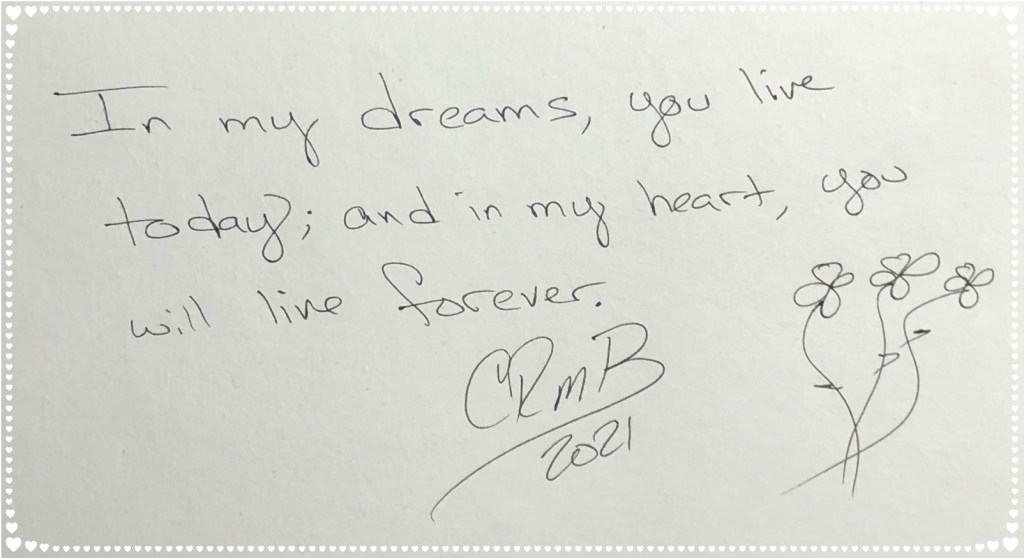 In my dreams, you live
today; and in my heart, you
will live forever.
CRMB
2021